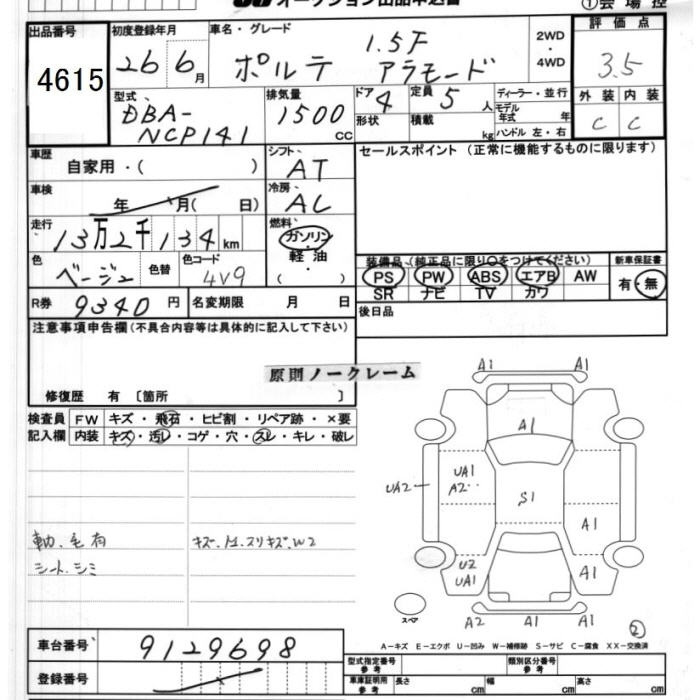 出品番号
4615
初度登録年月
26 6月
車名・グレード
1.5F
ポルテ アラモード
2WD
・
4WD
評価点
3.5
型式
DBA-
NCP141
排気量
1500
CC
ドア
4
形状
定員
5人
積載
kg
ディーラー・並行
モデル年式 年
ハンドル 左・右
外装 内装
C C
車歴
自家用・( )
シフト
AT
セールスポイント (正常に機能するものに限ります)
車検
年 月( 日)
冷房
AC
走行
13万2千134km
燃料
ガソリン
・
軽油
・
( )
色
ベージュ
色替
色コード
4V9
装備品 (純正品に限り○をつけてください)
PS PW ABS エアB AW
SR ナビ TV カワ
新車保証書
有・無
R券
9340円
名変期限 月 日
後日品
注意事項申告欄(不具合内容等は具体的に記入して下さい)
原則ノークレーム
修復歴 有 〔箇所 〕
検査員
記入欄
FW キズ・飛石・ヒビ割・リペア跡・×要
内装 キズ・汚レ・コゲ・穴・スレ・キレ・破レ
毛有
シート、シミ
A1 A1
A1
UA1
A2
UA2
S1
A1
U2
UA1
A1
A2 A1 A1
スペア
②
車台番号
9129698
登録番号
A－キズ E－エクボ U－凹み W－補修跡 S－サビ C－腐食 XX－交換済
型式指定番号
参考
類別区分番号
参考
車庫証明用
参考
長さ cm
幅 cm
高さ cm